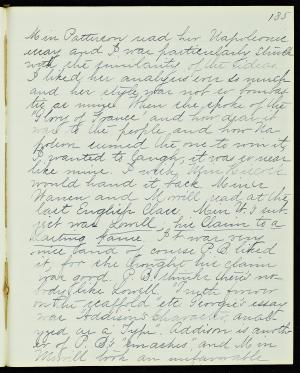 135
Miss Patterson read her Napoleonic
essay and I was particularly struck
with the similarity of the ideas.
I liked her analysis ever so much
and her style was not so bombas
tic as mine. When she spoke of the
"Glory of France" and how dear it
was to the people and how Na-
poleon seemed the one to win it,
I wanted to laugh, it was so near
like mine. I wish Miss
would hand it back. Misses
Warren and Morrill read at the
last English Class. Miss W.'s sub
ject was Lowell, "his Claim to a
Lasting Fame." It was very
nice and of course P. B. liked
it, for she thought his claim
was good. P. B. thinks there's no
body like Lowell. "Truth forever
on the scaffold" etc. Georgie's essay
was Addison's Character, analy
zed as a "Type". Addison is anoth
er of P. B.'s "smashes" and Miss
Morrill took an unfavorable